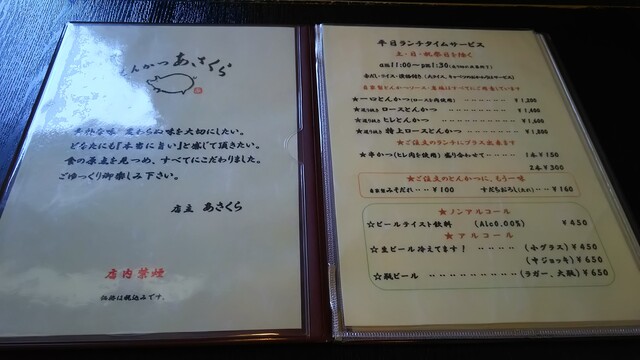 とんかつ あさくら
素朴な味 変わらぬ味を大切にしたい。
どなたにも『本当に旨い』と感じて頂きたい。
食の原点を見つめ、すべてにこだわりました。
ごゆっくり御楽しみ下さい。
店主 あさくら
店内禁煙
価格は税込みです。
平日ランチタイムサービス
土・日・祝祭日を除く
11:00〜pm1:30
★一口とんかつ(ロース肉使用) ‥‥‥‥ ¥1,200
★ ロースとんかつ
★ ヒレとんかつ ‥‥‥‥ ¥1,600
★ 特上ロースとんかつ ¥1,800
★ご注文のランチにプラス出来ます
★串かつ(ヒレ肉を使用) 盛り合わせて‥‥‥ 1本¥150
2本¥300
★ご注文のとんかつに、もう一味
自家製みそだれ‥‥¥100 すだちおろし(だれ)‥‥¥160
★ノンアルコール
☆ビールテイスト飲料 (Alc0.00%) ¥450
★アルコール
☆生ビール冷えてます! ‥‥‥‥ (小グラス)¥450
(中ジョッキ)¥650
☆瓶ビール ‥‥‥‥‥‥‥‥ (ラガー、大瓶)¥650